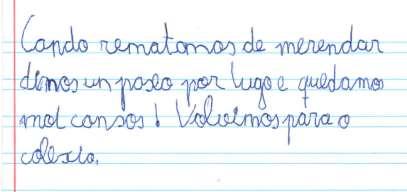 Cando rematamos de merendar
dimos un paseo por Lugo e quedamos
mol cansos! Volvimos para o
colexio.